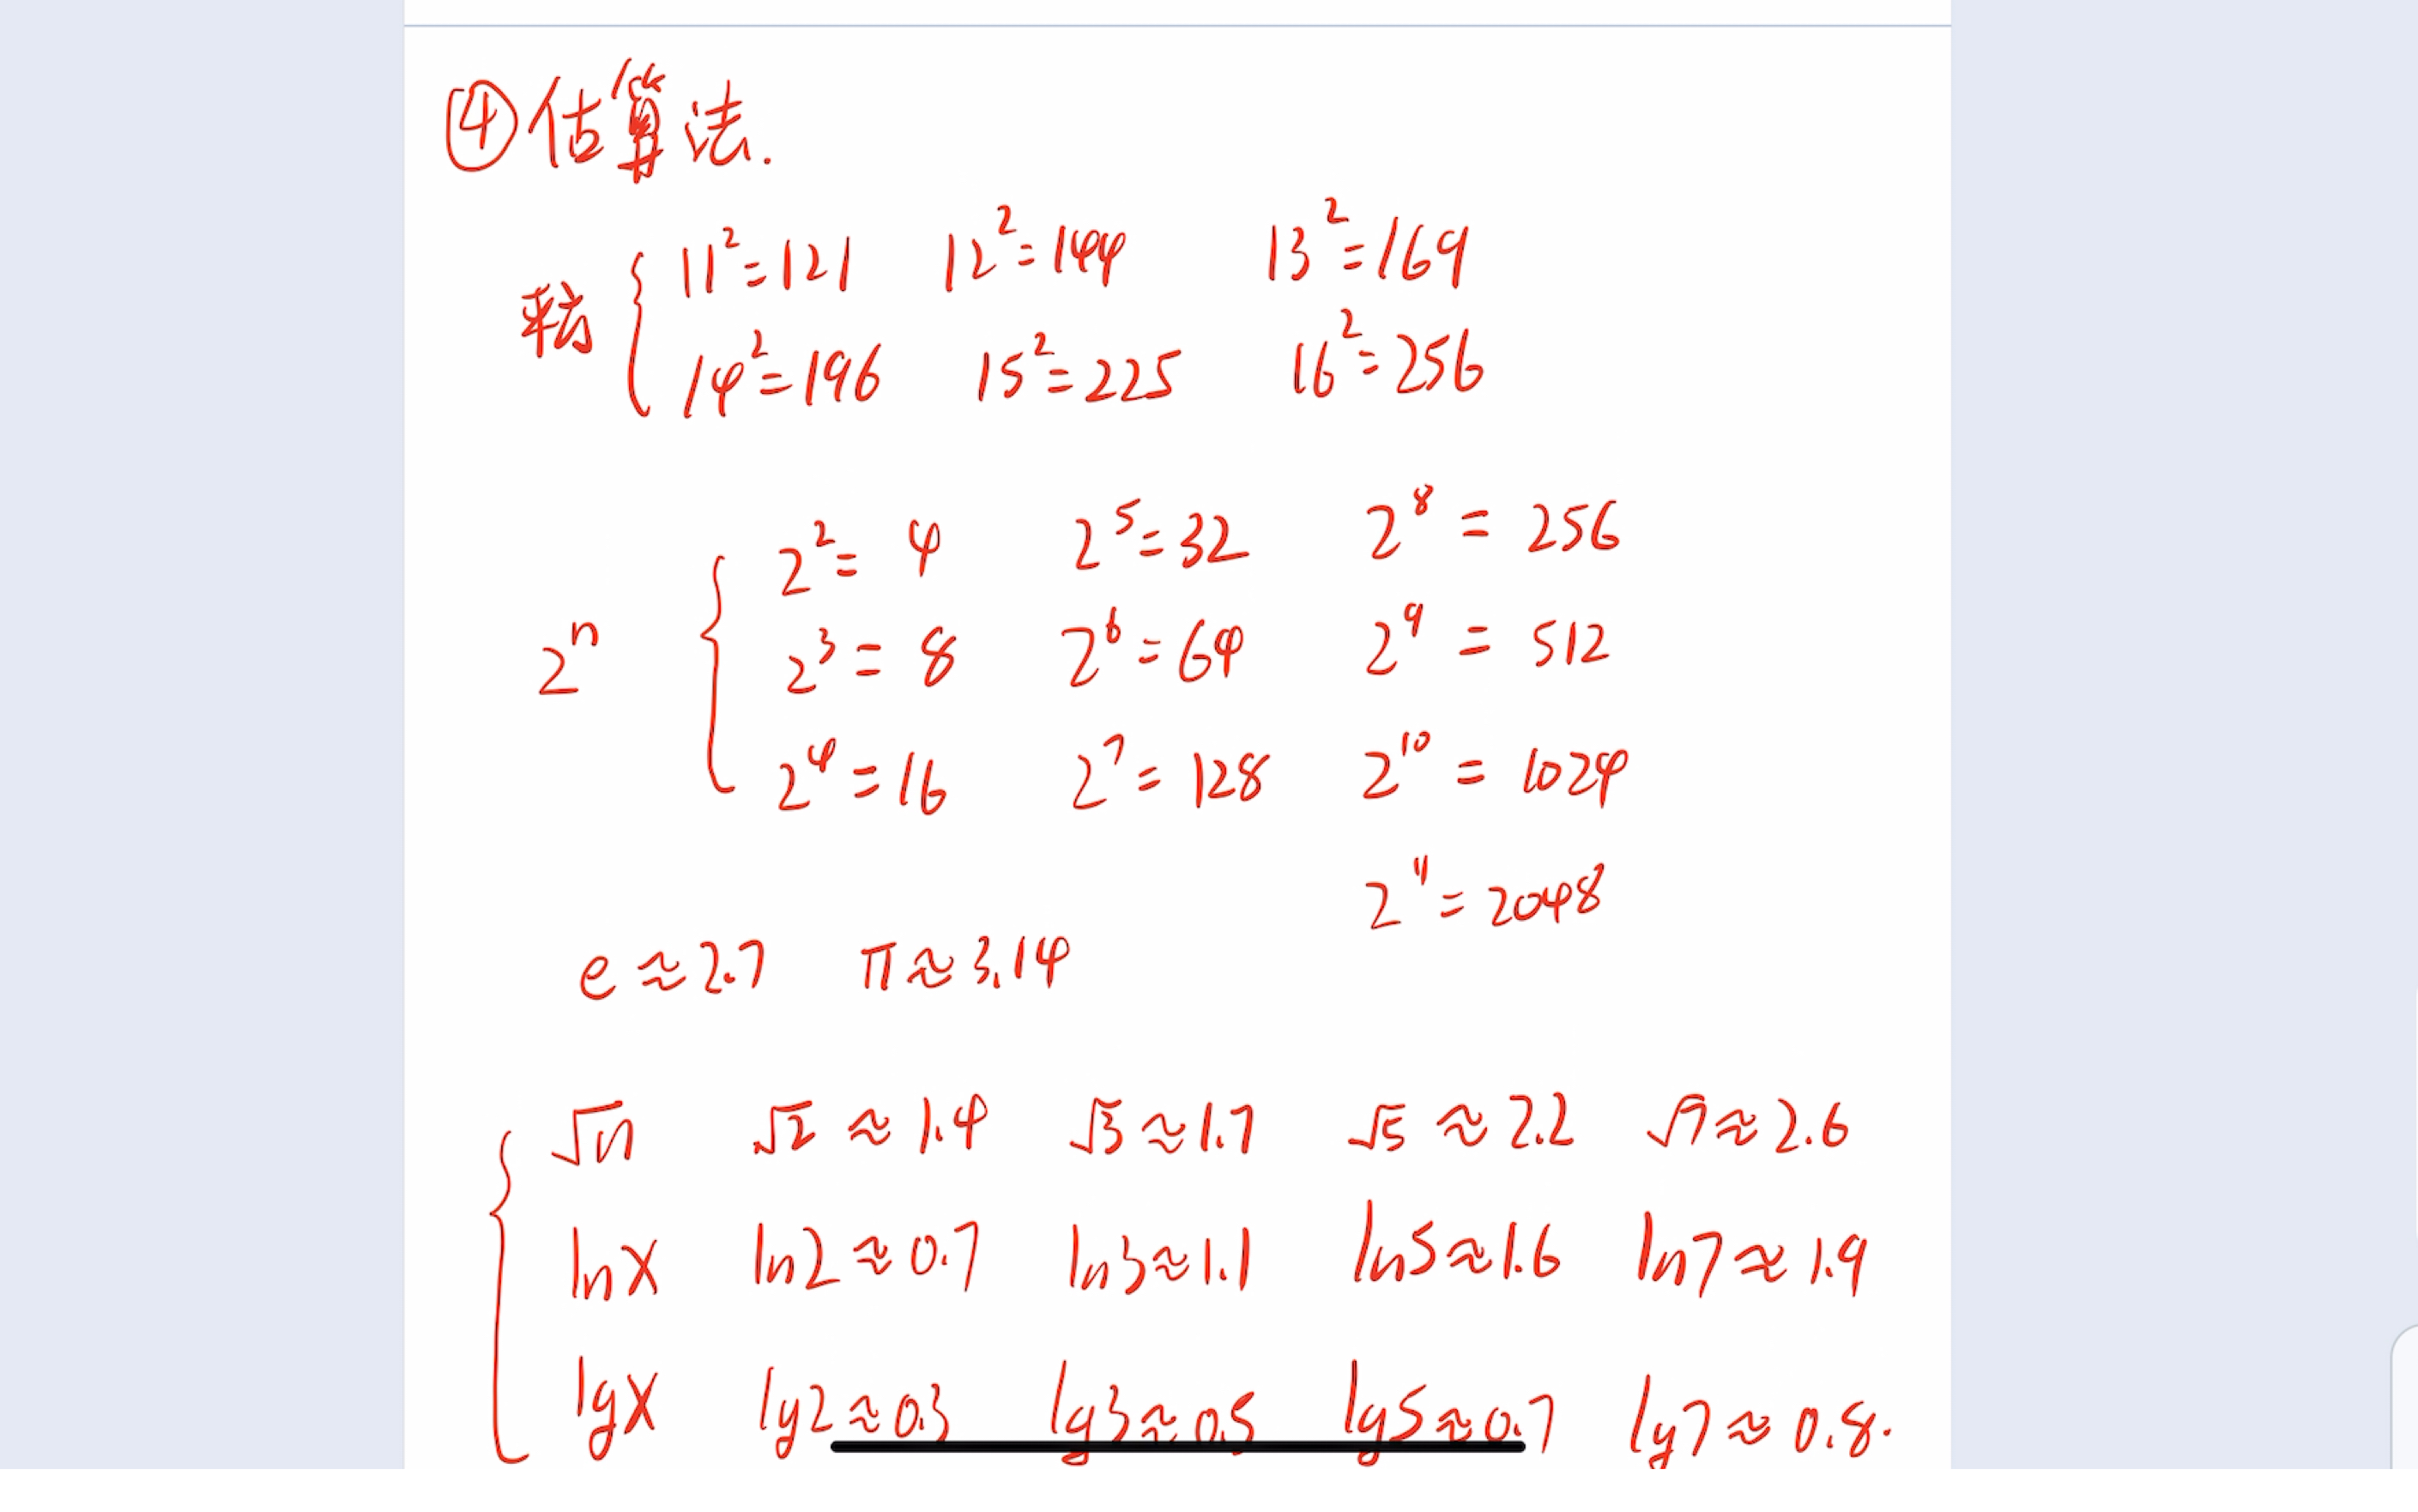 ④估算法.
平方 { 11²=121 12²=144 13²=169
14²=196 15²=225 16²=256
2ⁿ { 2²= 4 2⁵=32 2⁸ = 256
2³ = 8 2⁶=64 2⁹ = 512
2⁴ =16 2⁷= 128 2¹⁰ = 1024
2¹¹= 2048
e≈2.7 π≈3.14
{ √n √2 ≈ 1.4 √3≈1.7 √5 ≈ 2.2 √7≈2.6
lnx ln2≈0.7 ln3≈1.1 ln5≈1.6 ln7≈1.9
lgx lg2≈0.3 lg3≈0.5 lg5≈0.7 lg7≈0.8.